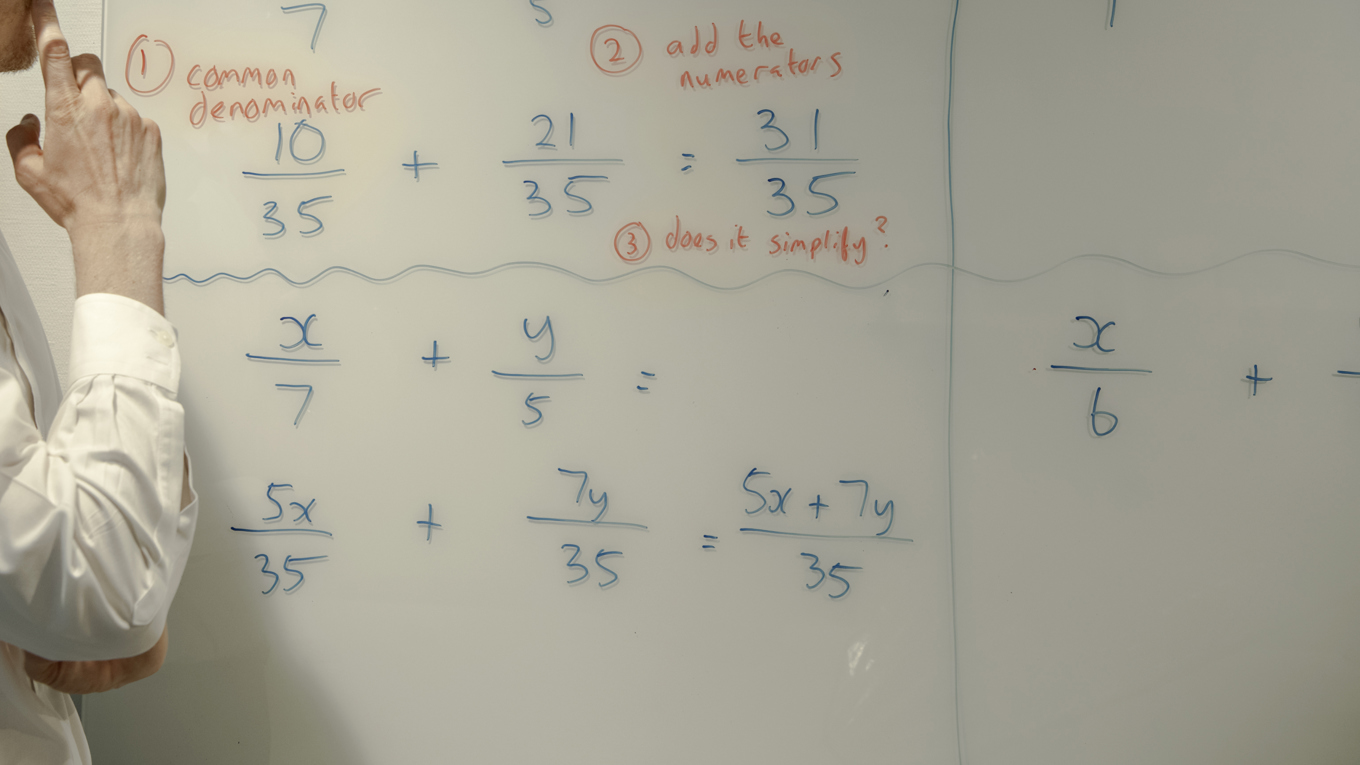 7 5
① common
denominator
② add the
numerators
10/35 + 21/35 = 31/35
③ does it simplify?
x/7 + y/5 =
5x/35 + 7y/35 = 5x + 7y/35
x/6 +